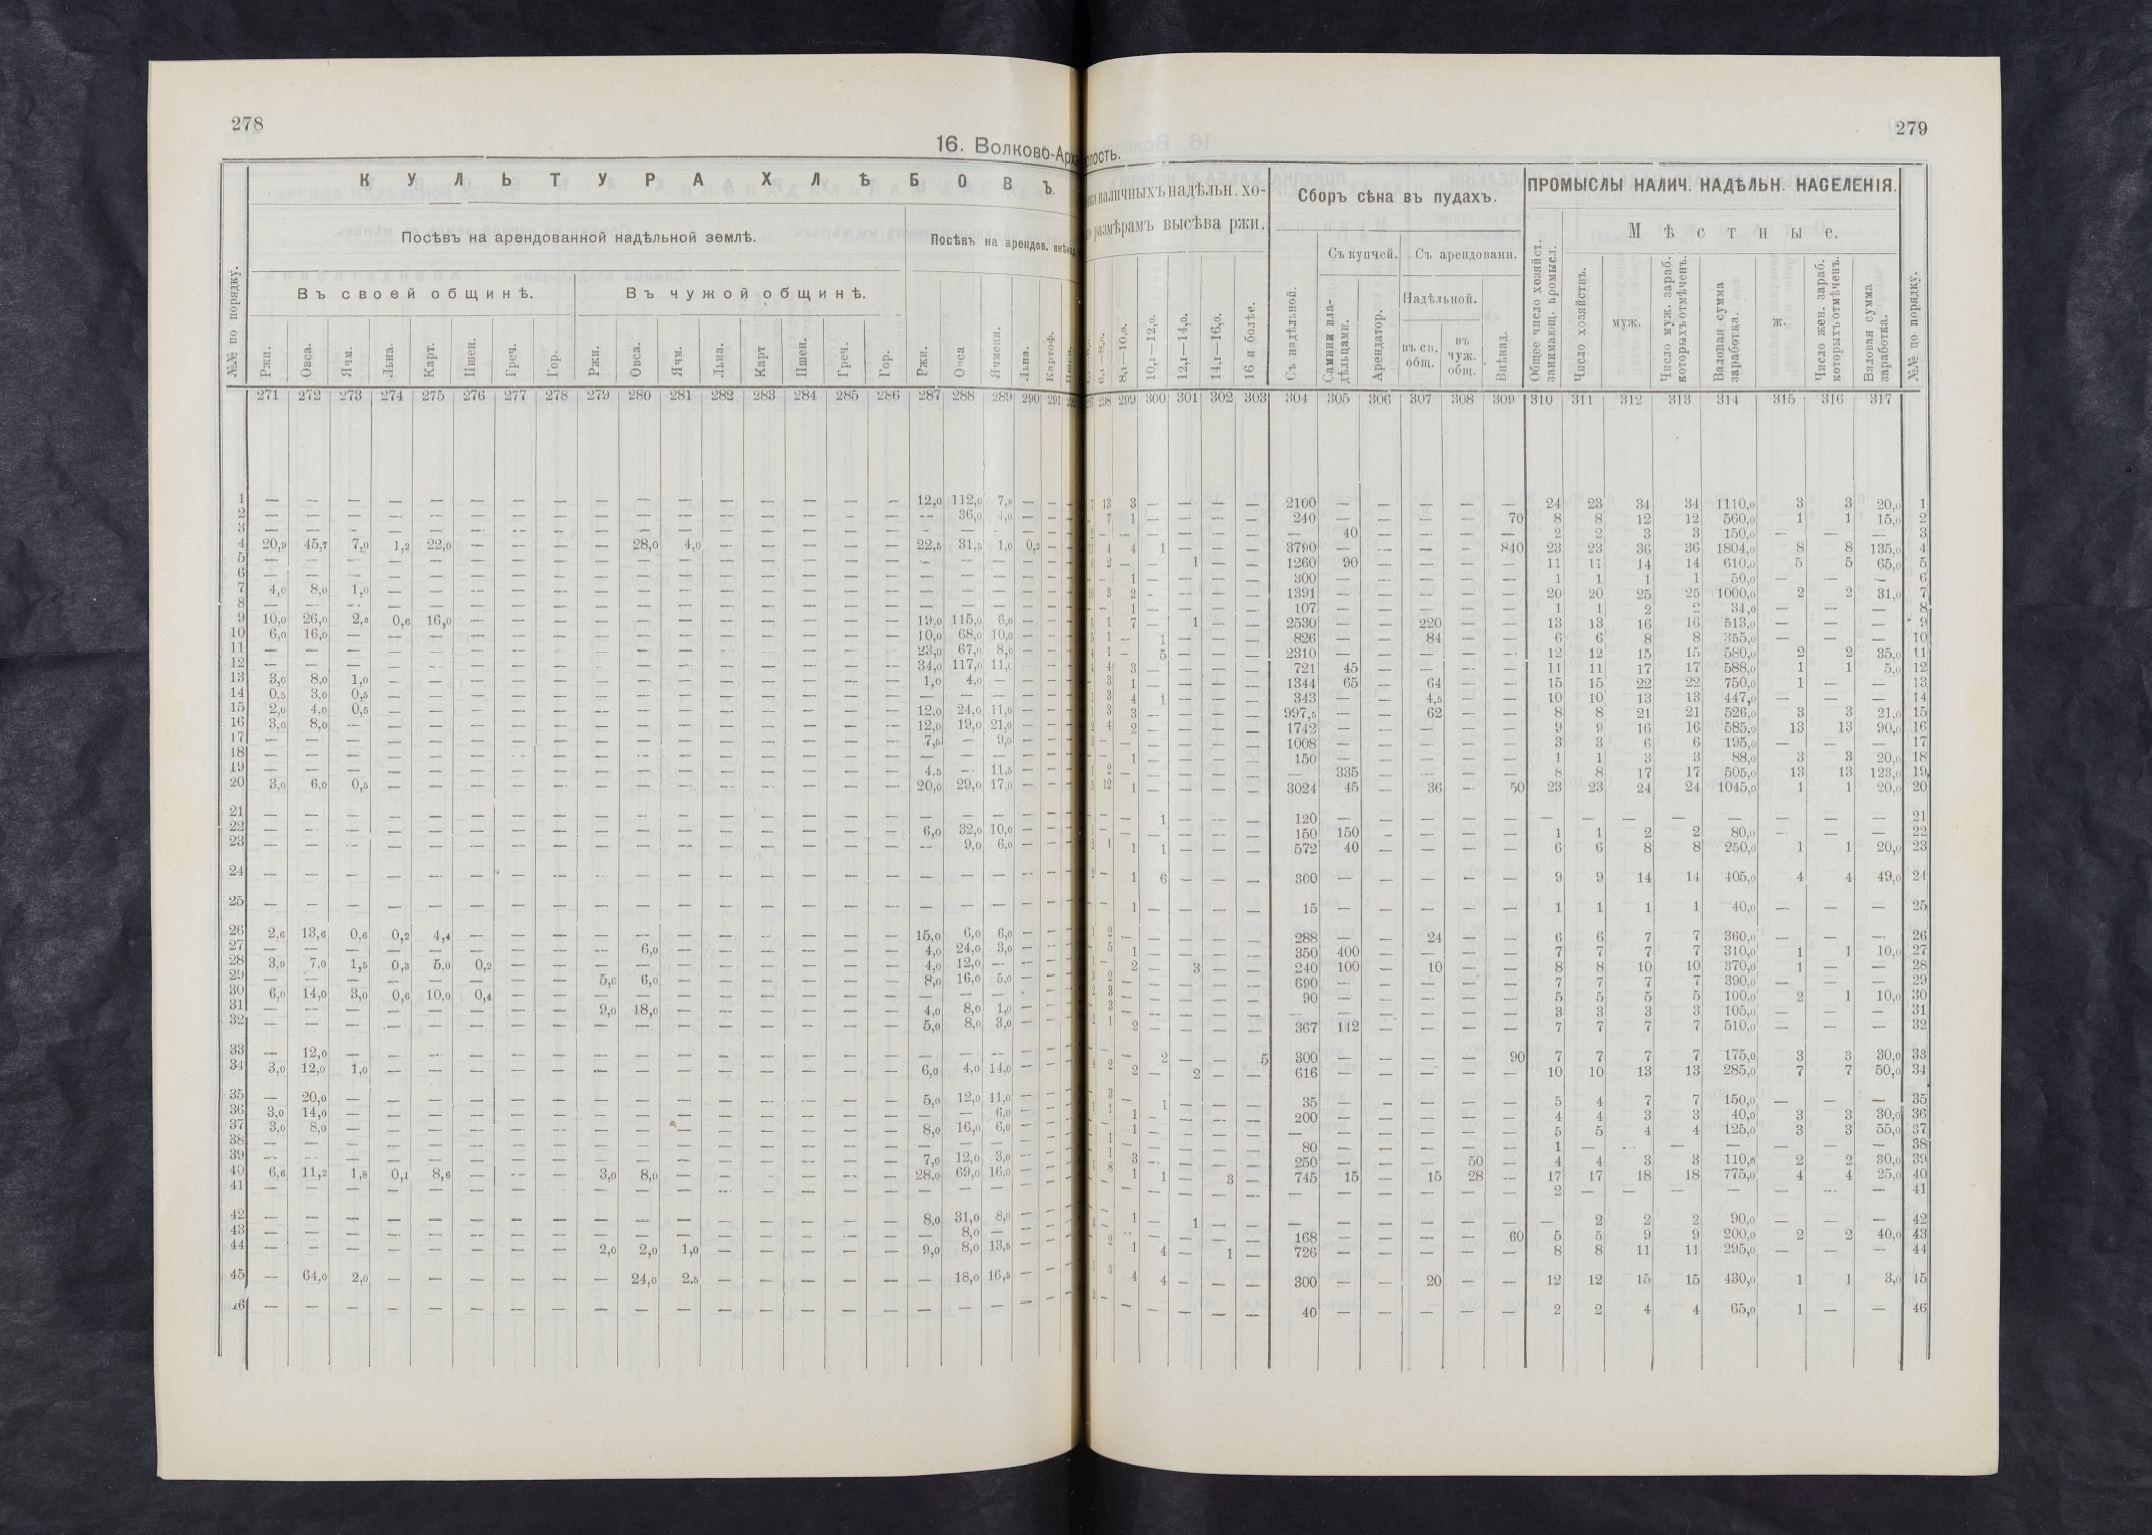 278
16. Волково-Арх
К У Л Ь Т У Р А Х Л Ѣ Б О В Ъ.
Посѣвъ на арендованной надѣльной землѣ.
Посѣвъ на арендов.
Въ своей общинѣ.
Въ чужой общинѣ.
№№ по порядку.
Ржи. Овса. Ячм. Льна. Карт. Пшен. Греч. Гор. Ржи. Овса. Ячм. Льна. Карт Пшен. Греч. Гор. Ржи. Овса Ячменя. Льна. Картоф.
271 272 273 274 275 276 277 278 279 280 281 282 283 284 285 286 287 288 289 290 291
1 — — — — — — — — — — — — — — — — 12,0 112,0 7,0 — —
2 — — — — — — — — — — — — — — — — — 36,0 4,0 — —
3 — — — — — — — — — — — — — — — — — — — — —
4 20,9 45,7 7,0 1,2 22,0 — — — — 28,0 4,0 — — — — — 22,5 31,5 1,0 0,2 —
5 — — — — — — — — — — — — — — — — — — — — —
6 — — — — — — — — — — — — — — — — — — — — —
7 4,0 8,0 1,0 — — — — — — — — — — — — — — — — — —
8 — — — — — — — — — — — — — — — — — — — — —
9 10,0 26,0 2,0 0,6 16,0 — — — — — — — — — — — 19,0 115,0 6,0 — —
10 6,0 16,0 — — — — — — — — — — — — — — 10,0 68,0 10,0 — —
11 — — — — — — — — — — — — — — — — 23,0 67,0 8,0 — —
12 — — — — — — — — — — — — — — — — 34,0 117,0 11,0 — —
13 3,0 8,0 1,0 — — — — — — — — — — — — — 1,0 4,0 — — —
14 0,5 3,0 0,5 — — — — — — — — — — — — — — — — — —
15 2,0 4,0 0,5 — — — — — — — — — — — — — 12,0 24,0 11,0 — —
16 3,0 8,0 — — — — — — — — — — — — — — 12,0 19,0 21,0 — —
17 — — — — — — — — — — — — — — — — 7,5 — 9,0 — —
18 — — — — — — — — — — — — — — — — — — — — —
19 — — — — — — — — — — — — — — — — 4,5 — 11,5 — —
20 3,0 6,0 0,5 — — — — — — — — — — — — — 20,0 29,0 17,0 — —
21 — — — — — — — — — — — — — — — — — — — — —
22 — — — — — — — — — — — — — — — — 6,0 32,0 10,0 — —
23 — — — — — — — — — — — — — — — — — 9,0 6,0 — —
24 — — — — — — — — — — — — — — — — — — — — —
25 — — — — — — — — — — — — — — — — — — — — —
26 2,6 13,6 0,6 0,2 4,4 — — — — — — — — — — — 15,0 6,0 6,0 — —
27 — — — — — — — — — 6,0 — — — — — — 4,0 24,0 3,0 — —
28 3,9 7,0 1,5 0,3 5,0 0,2 — — — — — — — — — — 4,0 12,0 — — —
29 — — — — — — — — 5,0 6,0 — — — — — — 8,0 16,0 5,0 — —
30 6,0 14,0 3,0 0,6 10,0 0,4 — — — — — — — — — — — — — — —
31 — — — — — — — — 9,0 18,0 — — — — — — 4,0 8,0 1,0 — —
32 — — — — — — — — — — — — — — — — 5,0 8,0 3,0 — —
33 — 12,0 — — — — — — — — — — — — — — — — — — —
34 3,0 12,0 1,0 — — — — — — — — — — — — — 6,0 4,0 14,0 — —
35 — 20,0 — — — — — — — — — — — — — — 5,0 12,0 11,0 — —
36 3,0 14,0 — — — — — — — — — — — — — — — — 6,0 — —
37 3,0 8,0 — — — — — — — — — — — — — — 8,0 16,0 6,0 — —
38 — — — — — — — — — — — — — — — — — — — — —
39 — — — — — — — — — — — — — — — — 7,0 12,0 3,0 — —
40 6,6 11,2 1,8 0,4 8,6 — — — 3,0 8,0 — — — — — — 28,0 69,0 16,0 — —
41 — — — — — — — — — — — — — — — — — — — — —
42 — — — — — — — — — — — — — — — — 8,0 31,0 8,0 — —
43 — — — — — — — — — — — — — — — — — 8,0 — — —
44 — — — — — — — — 2,0 2,0 1,0 — — — — — 9,0 8,0 13,5 — —
45 — 64,0 2,0 — — — — — — 24,0 2,5 — — — — — — 18,0 16,5 — —
46 — — — — — — — — — — — — — — — — — — — — —
279
лость.
наличныхъ надѣльн. хо-
размѣрамъ высѣва ржи.
Сборъ сѣна въ пудахъ.
ПРОМЫСЛЫ НАЛИЧ. НАДѢЛЬН. НАСЕЛЕНІЯ.
М ѣ с т н ы е.
Съ купчей. Съ арендованн.
Надѣльной.
6,1—8,0. 8,1—10,0. 10,1—12,0. 12,1—14,0. 14,1—16,0. 16 и болѣе.
Съ надѣльной. Самими вла-дѣльцами. Арендатор. въ св. общ. въ чуж. общ. Внѣнад.
Общее число хозяйст. занимающ. промысл. Число хозяйствъ. муж. Число муж. зараб. которыхъ отмѣченъ. Валовая сумма заработка. ж. Число жен. зараб. которыхъ отмѣченъ. Валовая сумма заработка. №№ по порядку.
298 299 300 301 302 303 304 305 306 307 308 309 310 311 312 313 314 315 316 317
13 3 — — — — 2100 — — — — — 24 23 34 34 1110,0 3 3 20,0 1
7 1 — — — — 240 — — — — 70 8 8 12 12 560,0 1 1 15,0 2
— — — — — — — 40 — — — — 2 2 3 3 150,0 — — — 3
4 4 1 — — — 3790 — — — — 840 23 23 36 36 1804,0 8 8 135,0 4
2 — — 1 — — 1260 90 — — — — 11 11 14 14 610,0 5 5 65,0 5
— 1 — — — — 300 — — — — — 1 1 1 1 50,0 — — — 6
3 2 — — — — 1391 — — — — — 20 20 25 25 1000,0 2 2 31,0 7
— 1 — — — — 107 — — — — — 1 1 2 2 34,0 — — — 8
1 7 — 1 — — 2530 — — 220 — — 13 13 16 16 513,0 — — — 9
1 — 1 — — — 826 — — 84 — — 6 6 8 8 355,0 — — — 10
1 — 5 — — — 2310 — — — — — 12 12 15 15 580,0 2 2 35,0 11
4 3 — — — — 721 45 — — — — 11 11 17 17 588,0 1 1 5,0 12
3 1 — — — — 1344 65 — 64 — — 15 15 22 22 750,0 1 — — 13
3 4 1 — — — 343 — — 4,5 — — 10 10 13 13 447,0 — — — 14
3 3 — — — — 997,5 — — 62 — — 8 8 21 21 526,0 3 3 21,0 15
4 2 — — — — 1742 — — — — — 9 9 16 16 585,0 13 13 90,0 16
— — — — — — 1008 — — — — — 3 3 6 6 195,0 — — — 17
— 1 — — — — 150 — — — — — 1 1 3 3 88,0 3 3 20,0 18
2 — — — — — — 335 — — — — 8 8 17 17 505,0 13 13 123,0 19
12 1 — — — — 3024 45 — 36 — 50 23 23 24 24 1045,0 1 1 20,0 20
— — 1 — — — 120 — — — — — — — — — — — — — 21
— — — — — — 150 150 — — — — 1 1 2 2 80,0 — — — 22
1 1 1 — — — 572 40 — — — — 6 6 8 8 250,0 1 1 20,0 23
— 1 6 — — — 300 — — — — — 9 9 14 14 405,0 4 4 49,0 24
— 1 — — — — 15 — — — — — 1 1 1 1 40,0 — — — 25
2 — — — — — 288 — — 24 — — 6 6 7 7 360,0 — — — 26
5 1 — — — — 350 400 — — — — 7 7 7 7 310,0 1 1 10,0 27
— 2 — 3 — — 240 100 — 10 — — 8 8 10 10 370,0 1 — — 28
2 — — — — — 690 — — — — — 7 7 7 7 390,0 — — — 29
3 — — — — — 90 — — — — — 5 5 5 5 100,0 2 1 10,0 30
3 — — — — — — — — — — — 3 3 3 3 105,0 — — — 31
1 2 — — — — 367 142 — — — — 7 7 7 7 510,0 — — — 32
— — 2 — — 5 300 — — — — 90 7 7 7 7 175,0 3 3 30,0 33
2 2 — 2 — — 616 — — — — — 10 10 13 13 285,0 7 7 50,0 34
3 — 1 — — — 35 — — — — — 5 4 7 7 150,0 — — — 35
1 1 — — — — 200 — — — — — 4 4 3 3 40,0 3 3 30,0 36
— 1 — — — — — — — — — — 5 5 4 4 125,0 3 3 55,0 37
1 — — — — — 80 — — — — — 1 — — — — — — — 38
1 3 — — — — 250 — — — 50 — 4 4 3 3 110,0 2 2 30,0 39
8 1 1 — 3 — 745 15 — 15 28 — 17 17 18 18 775,0 4 4 25,0 40
— — — — — — — — — — — — 2 — — — — — — — 41
— 1 — 1 — — — — — — — — — 2 2 2 90,0 — — — 42
— — — — — — 168 — — — — 60 5 5 9 9 200,0 2 2 40,0 43
2 1 4 — 1 — 726 — — — — — 8 8 11 11 295,0 — — — 44
3 4 4 — — — 300 — — 20 — — 12 12 15 15 430,0 1 1 3,0 45
— — — — — — 40 — — — — — 2 2 4 4 65,0 1 — — 46